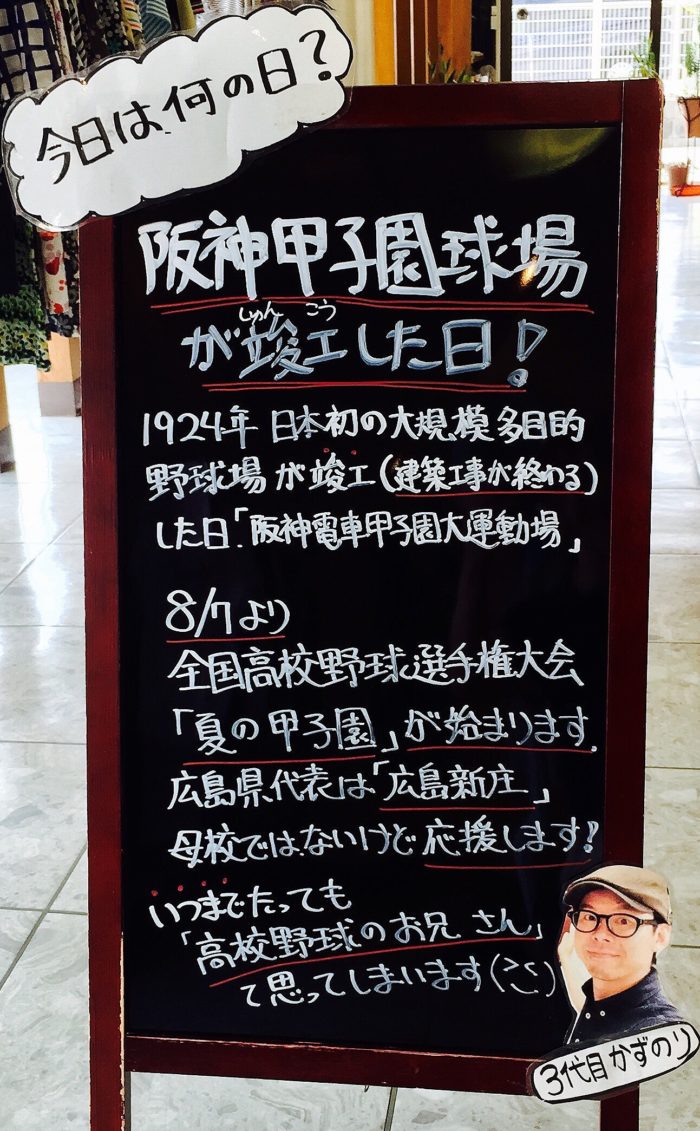 今日は何の日?
阪神甲子園球場
しゅんこう
が竣工した日!
1924年 日本初の大規模多目的
野球場が竣工(建築工事が終わる)
した日.「阪神電車甲子園大運動場」
8/7より
全国高校野球選手権大会
「夏の甲子園」が始まります.
広島県代表は「広島新庄」
母校ではないけど応援します!
いつまでたっても
「高校野球のお兄さん」
て思ってしまいます
3代目かずのり